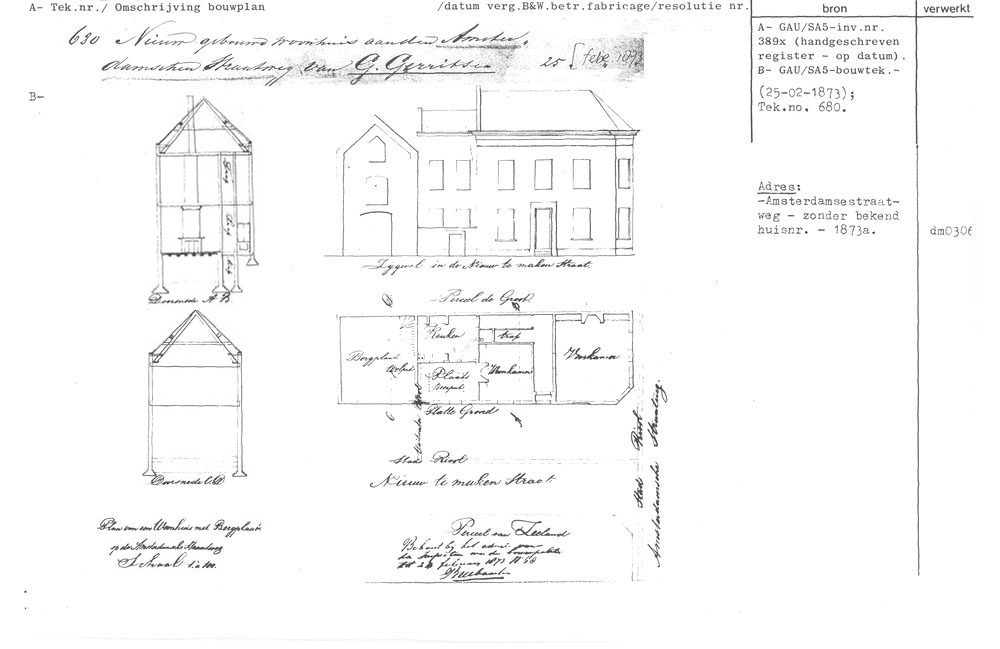 A- Tek.nr./ Omschrijving bouwplan /datum verg.B&W.betr.fabricage/resolutie nr.
bron
verwerkt
630 Nieuw gebouwd woonhuis aan den Amster-
damschen Straatweg van G. Gerritsen 25 [febr. 1873
A- GAU/SA5-inv.nr.
389x (handgeschreven
register - op datum).
B- GAU/SA5-bouwtek.-
(25-02-1873);
Tek.no. 680.
B-
Adres:
-Amsterdamsestraat-
weg - zonder bekend
huisnr. - 1873a.
dm0306
Doorsnede A B
Zygevel in de Nieuw te maken Straat.
Perceel de Groot.
D
B
Keuken
trap
Bergplaats
Plaats
Woonkamer
Voorkamer
C
A
Platte Grond
Stads Riool
Nieuw te maken Straat
Stads Riool
Amsterdamsche Straatweg.
Doorsnede C D
Plan van een Woonhuis met Bergplaats
op den Amsterdamsche Straatweg
Schaal 1 a 100.
Perceel van Zeeland
Behoort bij het advies van
den Inspecteur van de bouwpolitie